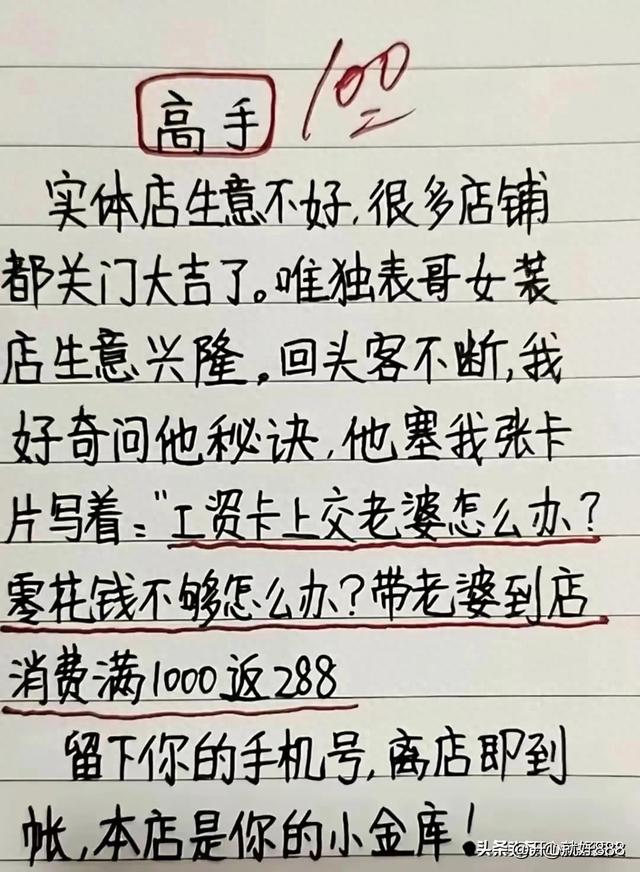 高手
100
实体店生意不好,很多店铺
都关门大吉了。唯独表哥女装
店生意兴隆。回头客不断,我
好奇问他秘诀,他塞我张卡
片写着:"工资卡上交老婆怎么办?
零花钱不够怎么办?带老婆到店
消费满1000返288
留下你的手机号,离店即到
帐,本店是你的小金库!